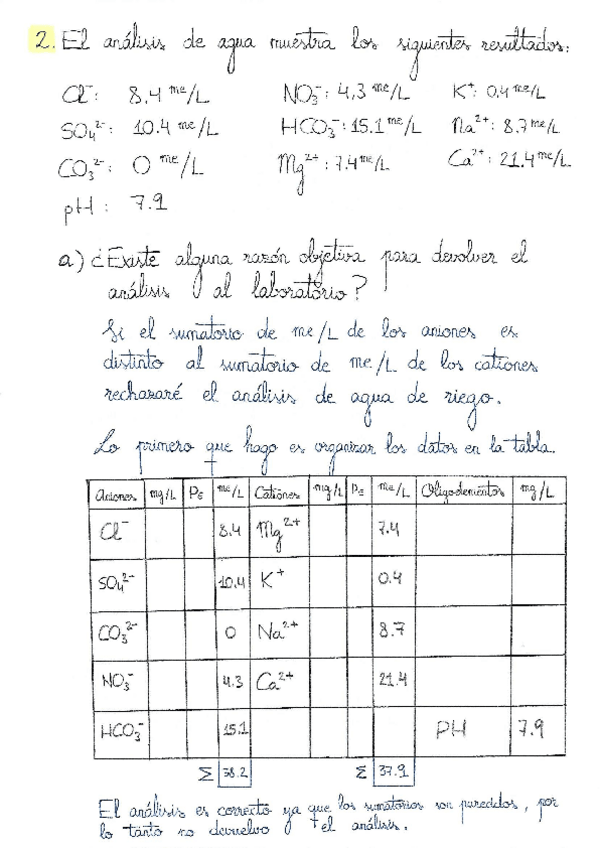 2. El análisis de agua muestra los siguientes resultados:
Cl⁻: 8.4 me/L NO₃⁻: 4,3 me/L K⁺: 0.4 me/L
SO₄²⁻: 10.4 me/L HCO₃⁻: 15.1 me/L Na²⁺: 8.7 me/L
CO₃²⁻: 0 me/L Mg²⁺: 7.4 me/L Ca²⁺: 21.4 me/L
pH: 7.9
a) ¿Existe alguna razón objetiva para devolver el
análisis al laboratorio?
Si el sumatorio de me/L de los aniones es
distinto al sumatorio de me/L de los cationes
rechazaré el análisis de agua de riego.
Lo primero que hago es organizar los datos en la tabla.
Aniones mg/L Pe me/L Cationes mg/L Pe me/L Oligoelementos mg/L
Cl⁻ 8.4 Mg²⁺ 7.4
SO₄²⁻ 10.4 K⁺ 0.4
CO₃²⁻ 0 Na²⁺ 8.7
NO₃⁻ 4.3 Ca²⁺ 21.4
HCO₃⁻ 15.1 PH 7.9
Σ 38.2 Σ 37.9
El análisis es correcto ya que los sumatorios son parecidos, por
lo tanto no devuelvo el análisis.